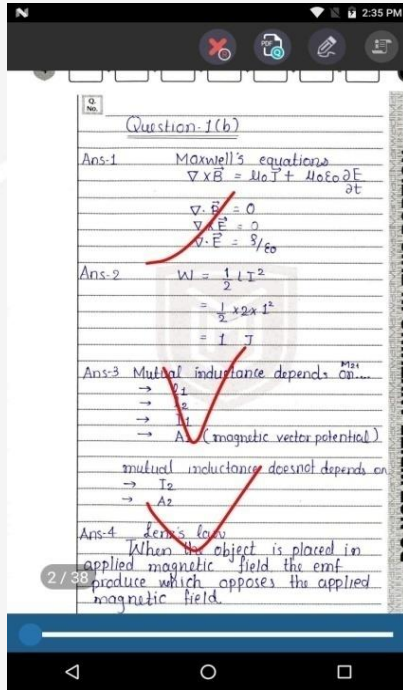 2:35 PM
PDF
Q.
No.
Question-1(b)
Ans-1 Maxwell's equations
∇ x B⃗ = μ₀ J⃗ + μ₀ε₀ ∂E
∂t
∇. B⃗ = 0
∇xE⃗ = 0
∇. E⃗ = ρ/ε₀
Ans-2 W = 1/2 L I²
= 1/2 x2x 1²
= 1 J
Ans-3 Mutual inductance depends on....
M21
→ I₁
→ A (magnetic vector potential)
mutual inductance doesnot depends on
→ I₂
→ A₂
Ans-4 Lenz's law
When the object is placed in
applied magnetic field the emf
produce which opposes the applied
magnetic field.
2 / 38